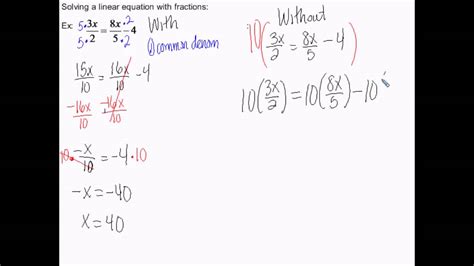 Solving a linear equation with fractions:
Ex: 5·3x/5·2 = 8x·2/5·2 - 4
With
① common denom
15x/10 = 16x/10 - 4
-16x/10 -16x/10
10·-x/10 = -4·10
-x = -40
x = 40
Without
10(3x/2 = 8x/5 - 4)
10(3x/2) = 10(8x/5) - 10